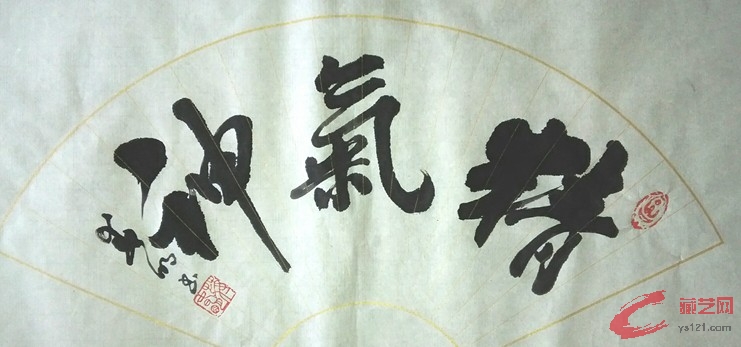 精氣神
书
藏艺网
ys121.com